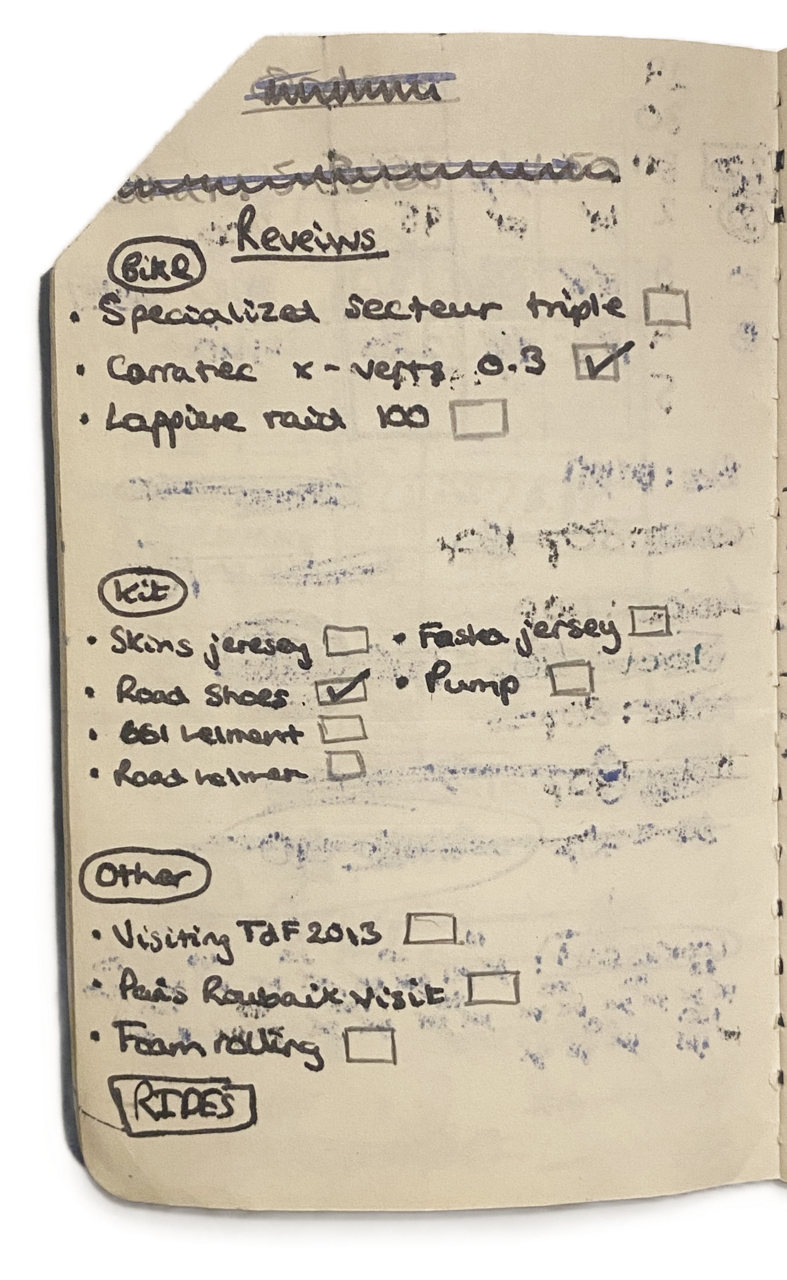 Reveiws
Bike
• Specialized secteur triple
• Corratec x-verts 0.3
• Lappiere raid 100
Kit
• Skins jeresey • Faska jersey
• Road Shoes • Pump
• 661 helment
• Road helmen
Other
• Visiting TdF 2013
• Paris Roubaix visit
• Foam rolling
RIDES